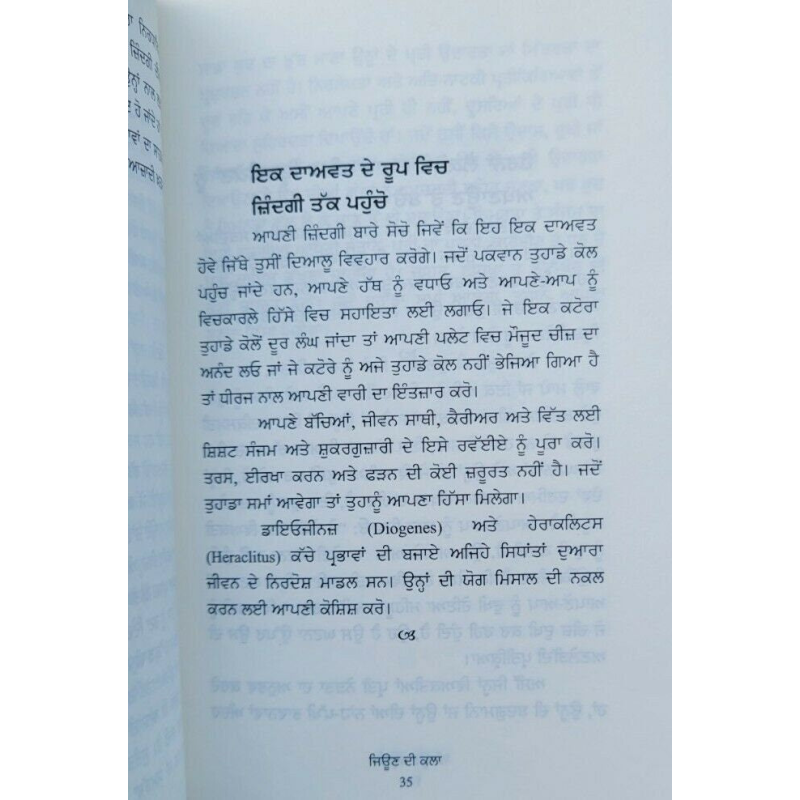 ਇਕ ਦਾਅਵਤ ਦੇ ਰੂਪ ਵਿਚ
ਜ਼ਿੰਦਗੀ ਤੱਕ ਪਹੁੰਚੋ
ਆਪਣੀ ਜ਼ਿੰਦਗੀ ਬਾਰੇ ਸੋਚੋ ਜਿਵੇਂ ਕਿ ਇਹ ਇਕ ਦਾਅਵਤ
ਹੋਵੇ ਜਿੱਥੇ ਤੁਸੀਂ ਦਿਆਲੂ ਵਿਵਹਾਰ ਕਰੋਗੇ। ਜਦੋਂ ਪਕਵਾਨ ਤੁਹਾਡੇ ਕੋਲ
ਪਹੁੰਚ ਜਾਂਦੇ ਹਨ, ਆਪਣੇ ਹੱਥ ਨੂੰ ਵਧਾਓ ਅਤੇ ਆਪਣੇ-ਆਪ ਨੂੰ
ਵਿਚਕਾਰਲੇ ਹਿੱਸੇ ਵਿਚ ਸਹਾਇਤਾ ਲਈ ਲਗਾਓ। ਜੇ ਇਕ ਕਟੋਰਾ
ਤੁਹਾਡੇ ਕੋਲੋਂ ਦੂਰ ਲੰਘ ਜਾਂਦਾ ਤਾਂ ਆਪਣੀ ਪਲੇਟ ਵਿਚ ਮੌਜੂਦ ਚੀਜ਼ ਦਾ
ਅਨੰਦ ਲਓ ਜਾਂ ਜੇ ਕਟੋਰੇ ਨੂੰ ਅਜੇ ਤੁਹਾਡੇ ਕੋਲ ਨਹੀਂ ਭੇਜਿਆ ਗਿਆ ਹੈ
ਤਾਂ ਧੀਰਜ ਨਾਲ ਆਪਣੀ ਵਾਰੀ ਦਾ ਇੰਤਜ਼ਾਰ ਕਰੋ।
ਆਪਣੇ ਬੱਚਿਆਂ, ਜੀਵਨ ਸਾਥੀ, ਕੈਰੀਅਰ ਅਤੇ ਵਿੱਤ ਲਈ
ਸ਼ਿਸ਼ਟ ਸੰਜਮ ਅਤੇ ਸ਼ੁਕਰਗੁਜ਼ਾਰੀ ਦੇ ਇਸੇ ਰਵੱਈਏ ਨੂੰ ਪੂਰਾ ਕਰੋ।
ਤਰਸ, ਈਰਖਾ ਕਰਨ ਅਤੇ ਫੜਨ ਦੀ ਕੋਈ ਜ਼ਰੂਰਤ ਨਹੀਂ ਹੈ। ਜਦੋਂ
ਤੁਹਾਡਾ ਸਮਾਂ ਆਵੇਗਾ ਤਾਂ ਤੁਹਾਨੂੰ ਆਪਣਾ ਹਿੱਸਾ ਮਿਲੇਗਾ।
ਡਾਇਓਜੀਨਜ਼ (Diogenes) ਅਤੇ ਹੇਰਾਕਲਿਟਸ
(Heraclitus) ਕੱਚੇ ਪ੍ਰਭਾਵਾਂ ਦੀ ਬਜਾਏ ਅਜਿਹੇ ਸਿਧਾਂਤਾਂ ਦੁਆਰਾ
ਜੀਵਨ ਦੇ ਨਿਰਦੋਸ਼ ਮਾਡਲ ਸਨ। ਉਨ੍ਹਾਂ ਦੀ ਯੋਗ ਮਿਸਾਲ ਦੀ ਨਕਲ
ਕਰਨ ਲਈ ਆਪਣੀ ਕੋਸ਼ਿਸ਼ ਕਰੋ।
ਜਿਊਣ ਦੀ ਕਲਾ
35